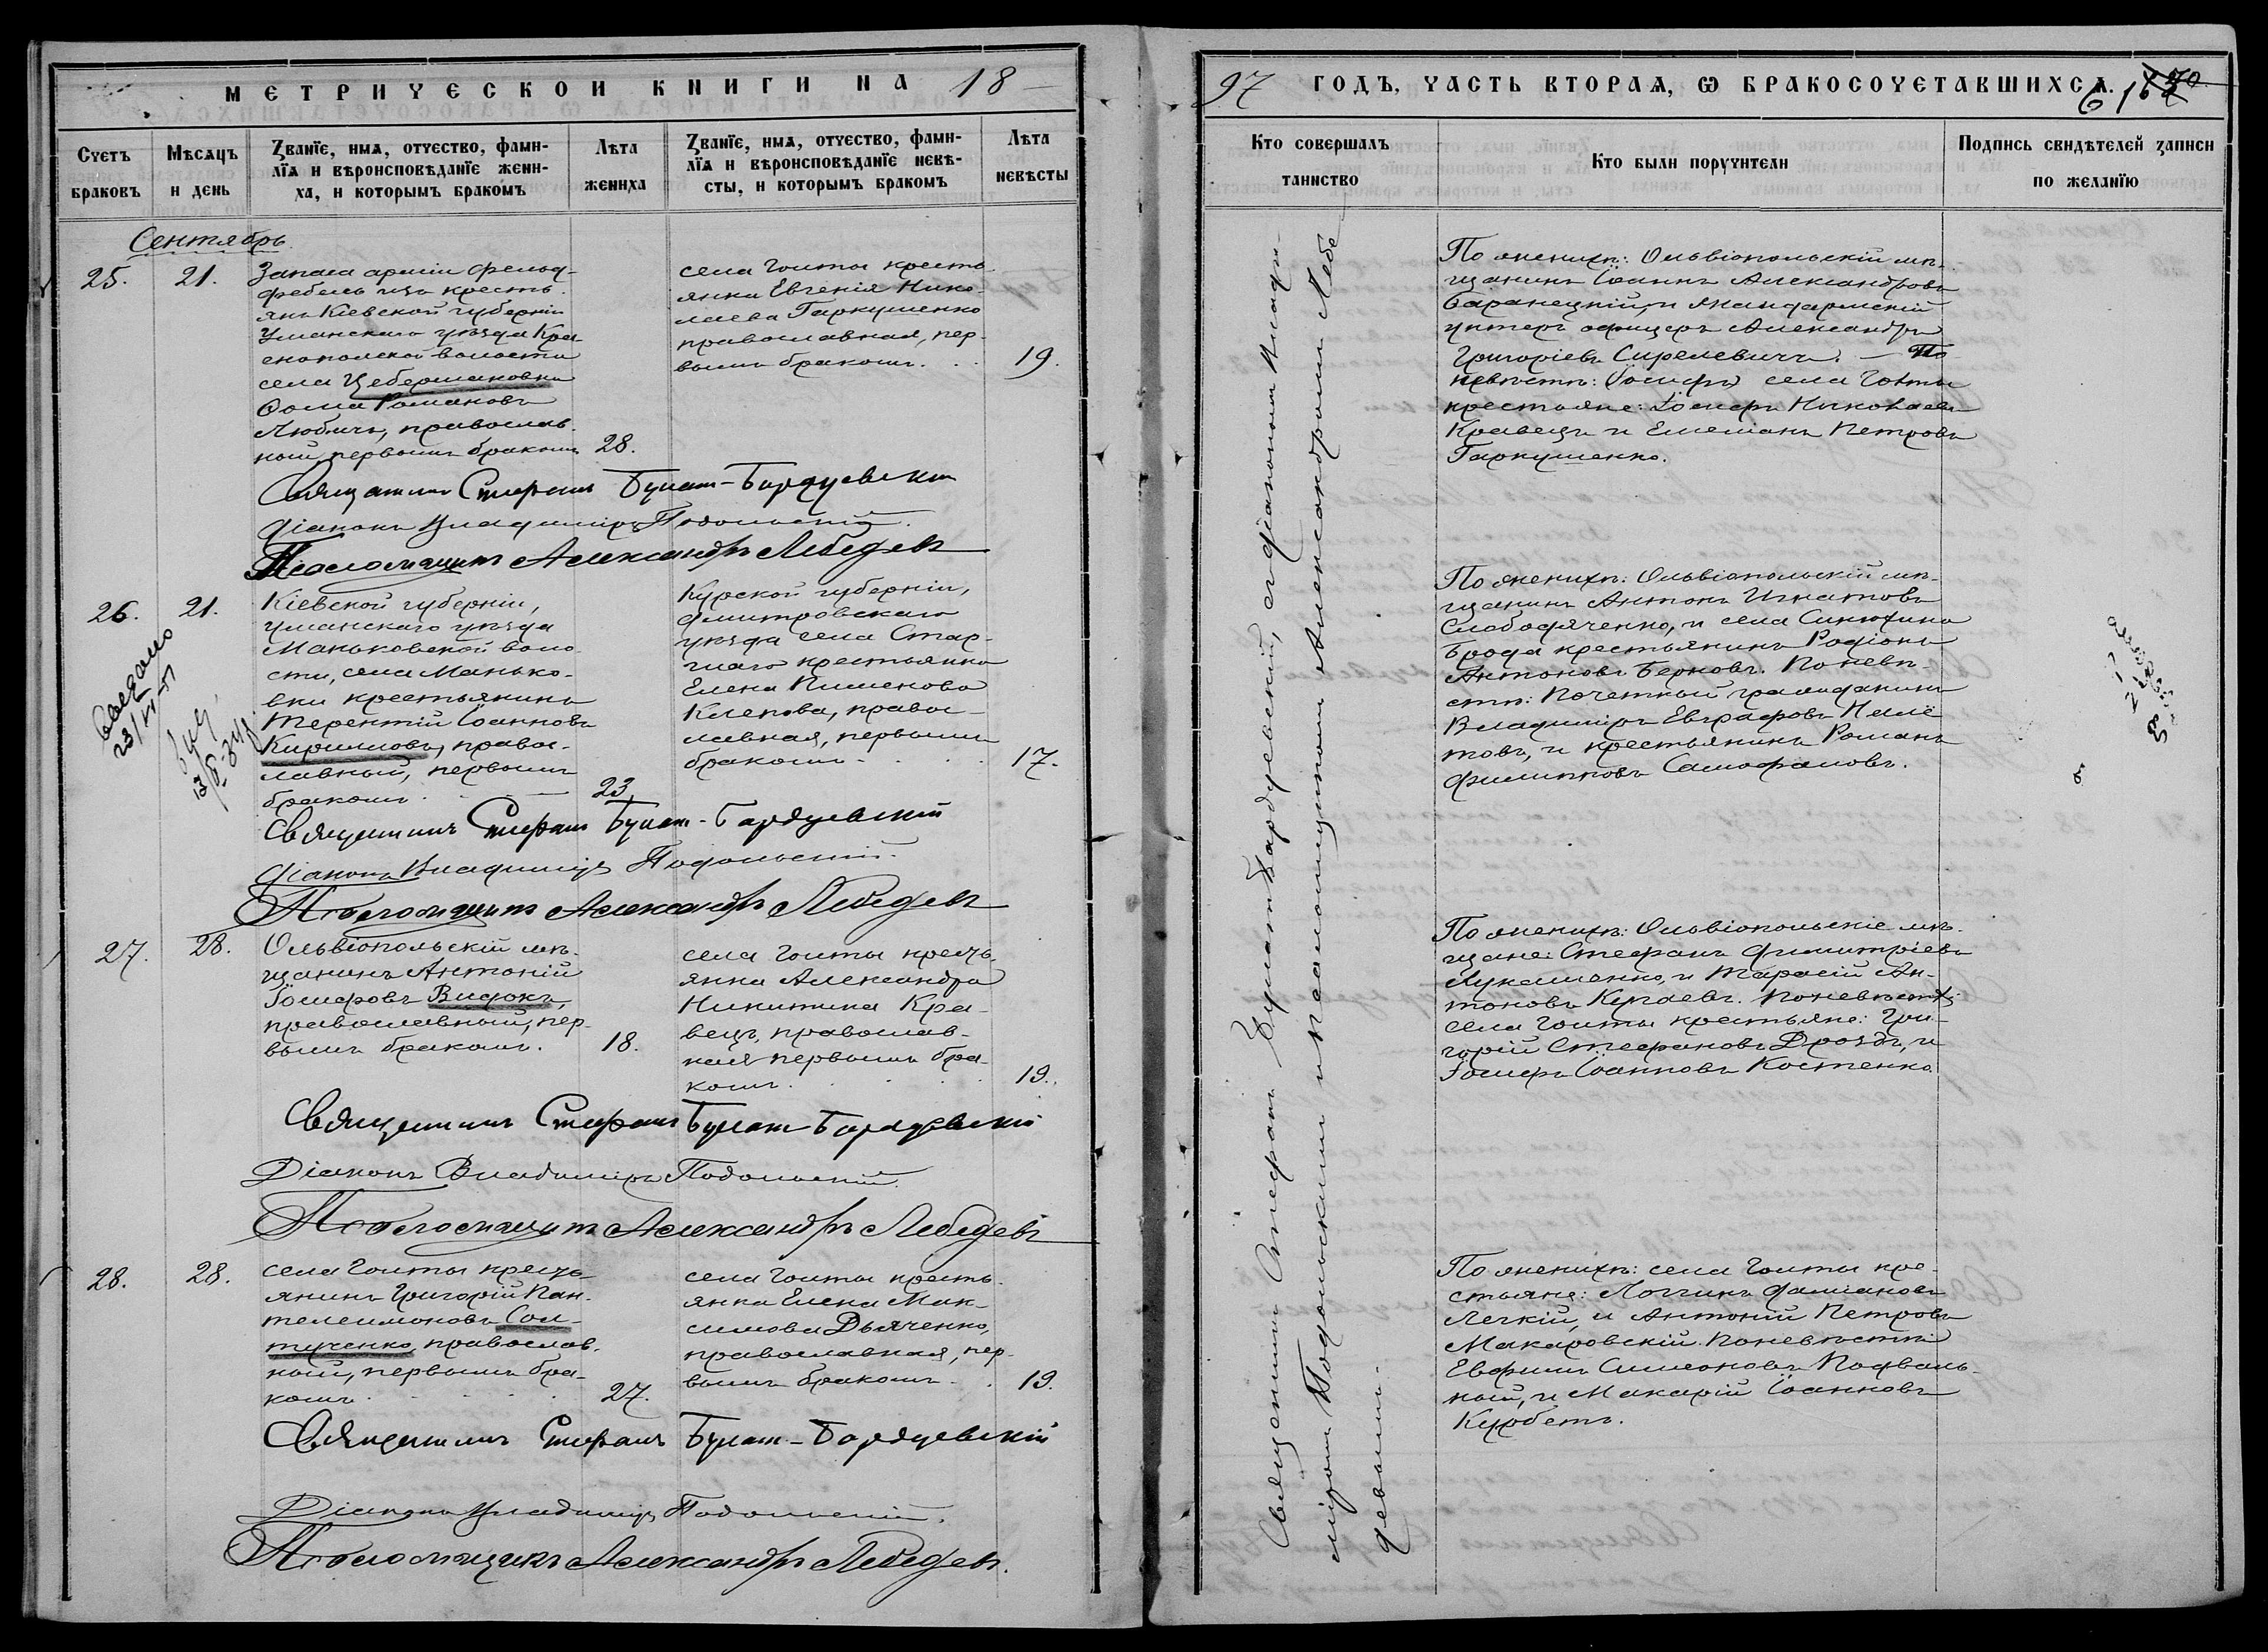 МЕТРИЧЕСКОЙ КНИГИ НА 18
Счетъ браковъ
Мѣсяцъ и день
Званїе, имѧ, отчество, фамилїѧ и вѣроисповѣданїе жениха, и которымъ бракомъ
Лѣта жениха
Званїе, имѧ, отчество, фамилїѧ и вѣроисповѣданїе невѣсты, и которымъ бракомъ
Лѣта невѣсты
Сентябрь
25. 21.
Запаса арміи фельд-
фебель изъ кресть-
янъ Кіевской губерніи
Уманскаго уѣзда Кра-
снопольской волости
села Цебермановки
Ѳома Романовъ
Любичъ, православ-
ный, первымъ бракомъ 28.
села Голты кресть-
янка Евгенія Нико-
лаева Гаркушенко
православная, пер-
вымъ бракомъ. 19.
Священникъ Стефанъ Булат-Бардуевскій
Діаконъ Владиміръ Подольскій.
Псаломщикъ Александръ Лебедевъ
26. 21.
Кіевской губерніи,
Уманскаго уѣзда
Маньковской воло-
сти, села Манько-
вки крестьянинъ
Терентій Іоанновъ
Кирилловъ, правос-
лавный, первымъ
бракомъ. 23.
Курской губерніи,
Дмитровскаго
уѣзда села Стар-
крестьянка
Елена Пименова
Клепова, правос-
лавная, первымъ
бракомъ. 17.
Священникъ Стефанъ Булат-Бардуевскій
Діаконъ Владиміръ Подольскій.
Псаломщикъ Александръ Лебедевъ
27. 28.
Ольвіопольскій мѣ-
щанинъ Антоній
Іосифовъ Видокъ,
православный, пер-
вымъ бракомъ. 18.
села Голты кресть-
янка Александра
Никитина Кра-
вецъ, православ-
ная первымъ бра-
комъ. 19.
Священникъ Стефанъ Булат Бардуевскій
Діаконъ Владиміръ Подольскій.
Псаломщикъ Александръ Лебедевъ
28. 28.
села Голты кресть-
янинъ Григорій Пан-
телеимоновъ Сол-
тученко, православ-
ный, первымъ бра-
комъ. 27.
села Голты кресть-
янка Елена Мак-
симова Дьяченко,
православная, пер-
вымъ бракомъ. 19.
Священникъ Стефанъ Булат-Бардуевскій
Діаконъ Владиміръ Подольскій.
Псаломщикъ Александръ Лебедевъ.
97 ГОДЪ, ЧАСТЬ ВТОРАѦ, Ѡ БРАКОСОЧЕТАВШИХСѦ.
Кто совершалъ таинство
Кто были поручители
Подпись свидѣтелей записи по желанїю
Священникъ Стефанъ Булатъ Бардуевскій, съ діакономъ Влади-
міромъ Подольскимъ и псаломщикомъ Александромъ Лебе-
девымъ.
По женихѣ: Ольвіопольскій мѣ-
щанинъ Іоаннъ Александровъ
Баранецкій, и жандармскій
унтеръ офицеръ Александръ
Григоріевъ Сирелевичъ. — По
невѣстѣ: села Голты
крестьяне: Іосифъ Николаевъ
Кравецъ и Емеліанъ Петровъ
Гаркушенко.
По женихѣ: Ольвіопольскій мѣ-
щанинъ Антонъ Игнатовъ
Слободяченко, и села Синюхина
Брода крестьянинъ Родіонъ
Антоновъ Берновъ. По невѣ-
стѣ: Почетный гражданинъ
Владиміръ Евграфовъ
и крестьянинъ Романъ
Филипповъ Самофаловъ.
По женихѣ: Ольвіопольскіе мѣ-
щане: Стефанъ Димитріевъ
Лукашенко, и Тарасій Ан-
тоновъ По невѣстѣ:
села Голты крестьяне: Гри-
горій Стефановъ Дроздъ, и
Іосифъ Іоанновъ Костенко.
По женихѣ: села Голты кре-
стьяне: Логгинъ Даміановъ
Легкій, и Антоній Петровъ
Макаровскій. По невѣстѣ:
Евфимъ Симеоновъ Подваль-
ный, и Макарій Іоанновъ
Курбетъ.